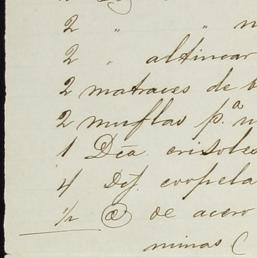 2 " " 
2 " altincar
2 matraces de
2 muflas p.ª
1 Dcā. crisoles
4 Dcˢ. coopela
½ @ de acero
minas (